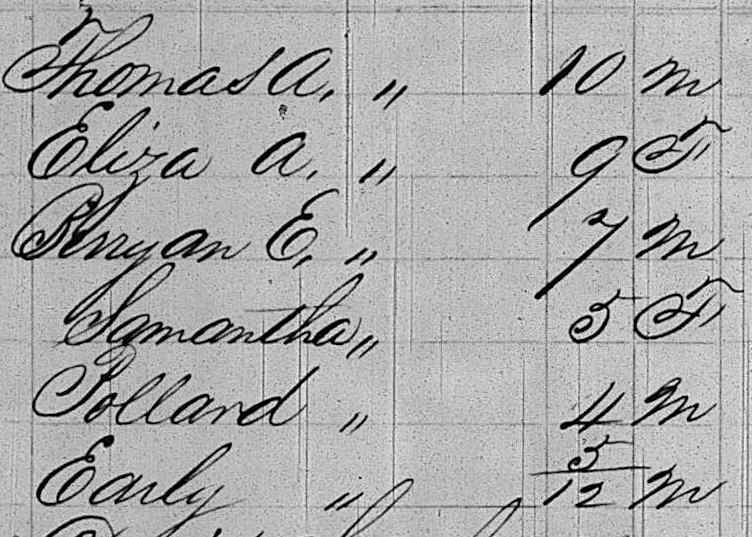 Thomas A. " 10 m
Eliza A. " 9 F
Perryan E. " 7 m
Samantha " 5 F
Polland " 4 m
Early " 5/12 m